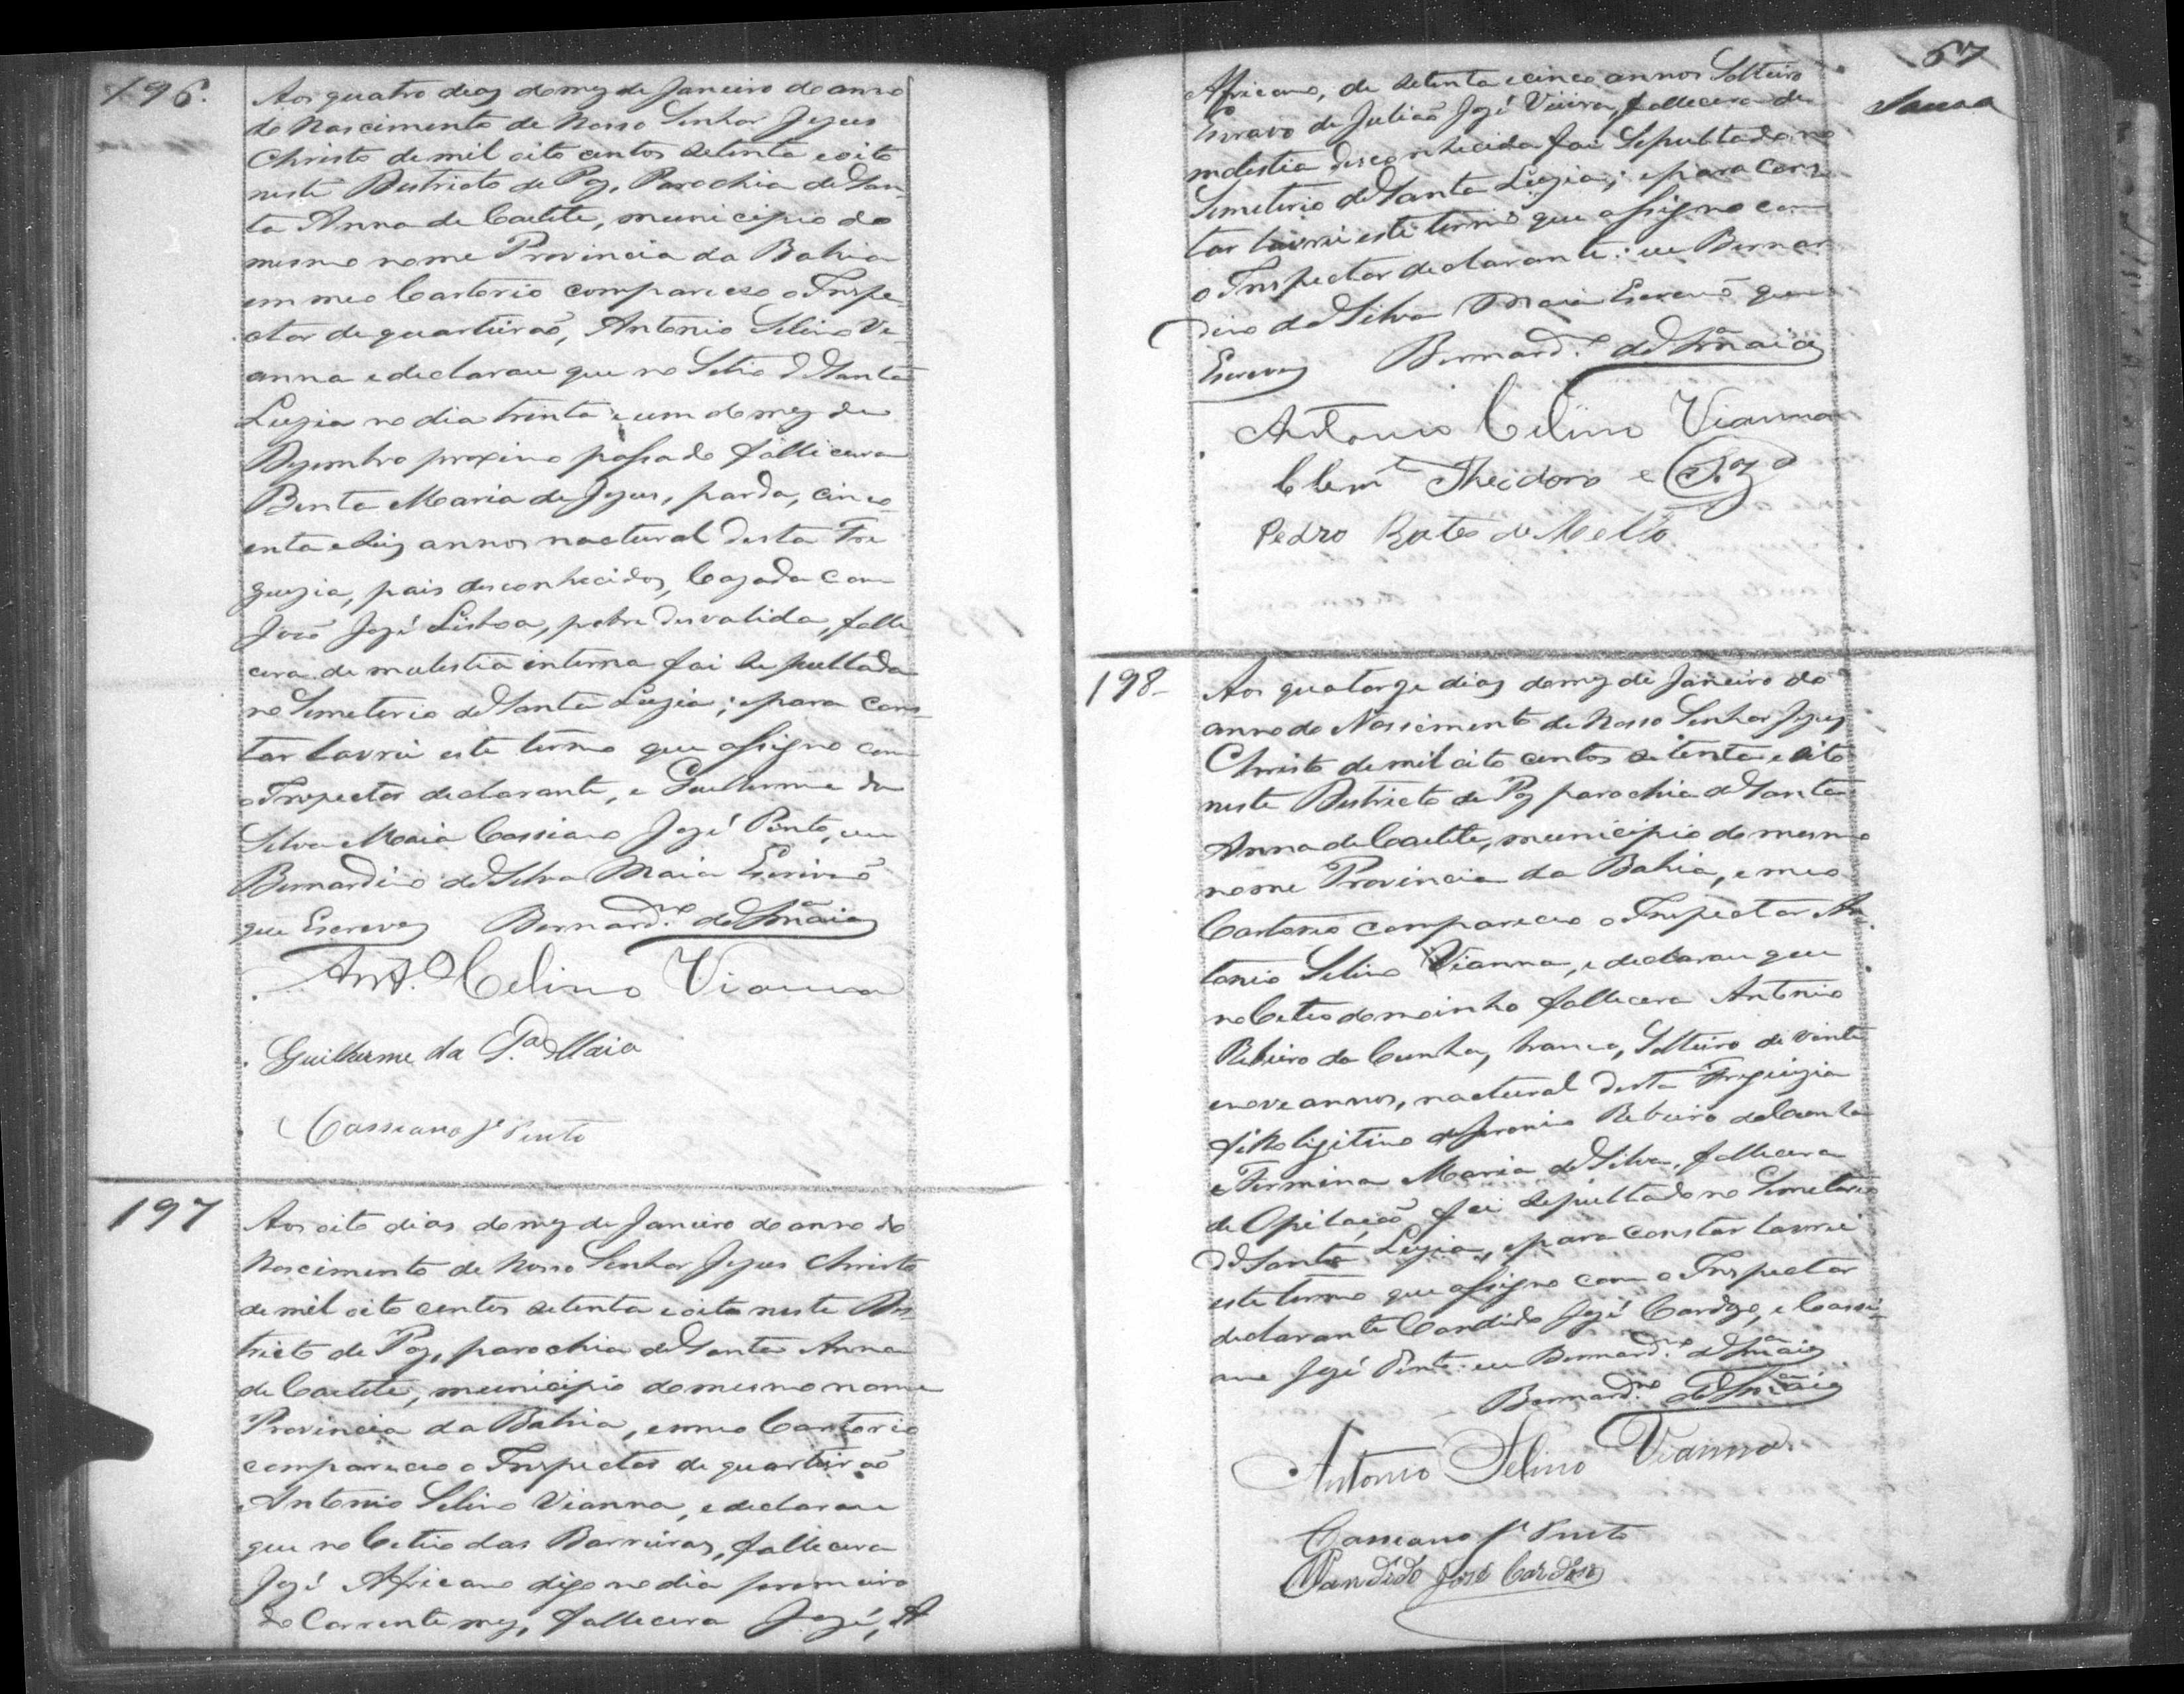 196.
Aos quatro dias do mez de Janeiro do anno
do Nascimento de Nosso Senhor Jezus
Christo de mil oito centos setenta e oito
neste Districto de Paz, Parochia de San-
ta Anna de Caetite, municipio do
mesmo nome Provincia da Bahia
em meo Cartorio compareceo o Inspe-
ctor de quarteirão, Antonio Selino Vi-
anna e declarou que no Sitio de Santa
Luzia no dia trinta e um do mez de
Dezembro proximo passado fallecera
Benta Maria de Jezus, parda, cinco-
enta e seis annos nactural desta Fre
guezia, pais desconhecidos, Cazada com
João Jozé Lisboa, pobre desvalida, falle
cera de molestia interna foi sepultada
no Semeterio de Santa Luzia; e para cons-
tar lavrei este termo que assigno com
o Inspector declarante, e Guilherme da
Silva Maia Cassiano Jozé Pinto, eu
Bernardino da Silva Maia Escrivão
que Escrevy Bernard.no da S.a Maia
Ant.o Celino Vianna
Guilherme da S.a Maia
Cassiano J.e Pinto
197
Aos oito dias do mez de Janeiro do anno do
Nascimento de Nosso Senhor Jezus Christo
de mil oito centos setenta e oito neste Dis-
tricto de Paz, parochia de Santa Anna
de Caetite, municipio do mesmo nome
Provincia da Bahia, e meo Cartorio
compareceo o Inspector de quarteirão
Antonio Selino Vianna, e declarou
que no Citio das Barreiras, fallecera
Jozé Africano digo no dia primeiro
do Corrente mez, fallecera Jozé, A
67
Africano, de setenta e cinco annos Solteiro
Escravo de Julião Jozé Vieira, fallecera de
molestia desconhecida foi Sepultado no
Semeterio de Santa Luzia; e para cons-
tar lavrei este termo que assigno com
o Inspector declarante: eu Bernar
dino da Silva Maia Escrivão que
Escrevy Bernard.o da S.a Maia
Antonio Celino Vianna
Clem.te Theodoro e
Pedro Bates de Mello
198-
Aos quatorze dias do mez de Janeiro do
anno do Nascimento de Nosso Senhor Jezus
Christo de mil oito centos setenta e oito
neste Districto de Paz parochia de Santa
Anna de Caetite, municipio do mesmo
nome Provincia da Bahia, e meo
Cartorio compareceo o Inspector An
tonio Selino Vianna, e declarou que
no Citio do moinho fallecera Antonio
Ribeiro da Cunha, branco, Solteiro de vinte
e nove annos, nactural desta Freguizia
filho ligitimo de Jeronimo Ribeiro da Cunha
e Fermina Maria da Silva, fallecera
de Opilação foi sepultado no Semeterio
de Santa Luzia, e para constar lavrei
este termo que assigno com o Inspector
declarante Candido Jozé Cardozo, e Cassi-
ano Jozé Pinto: eu Bernard.no da S.a Maia
Bernard.no da S.a Maia
Antonio Selino Vianna
Cassiano J.e Pinto
Candido José Cardoso